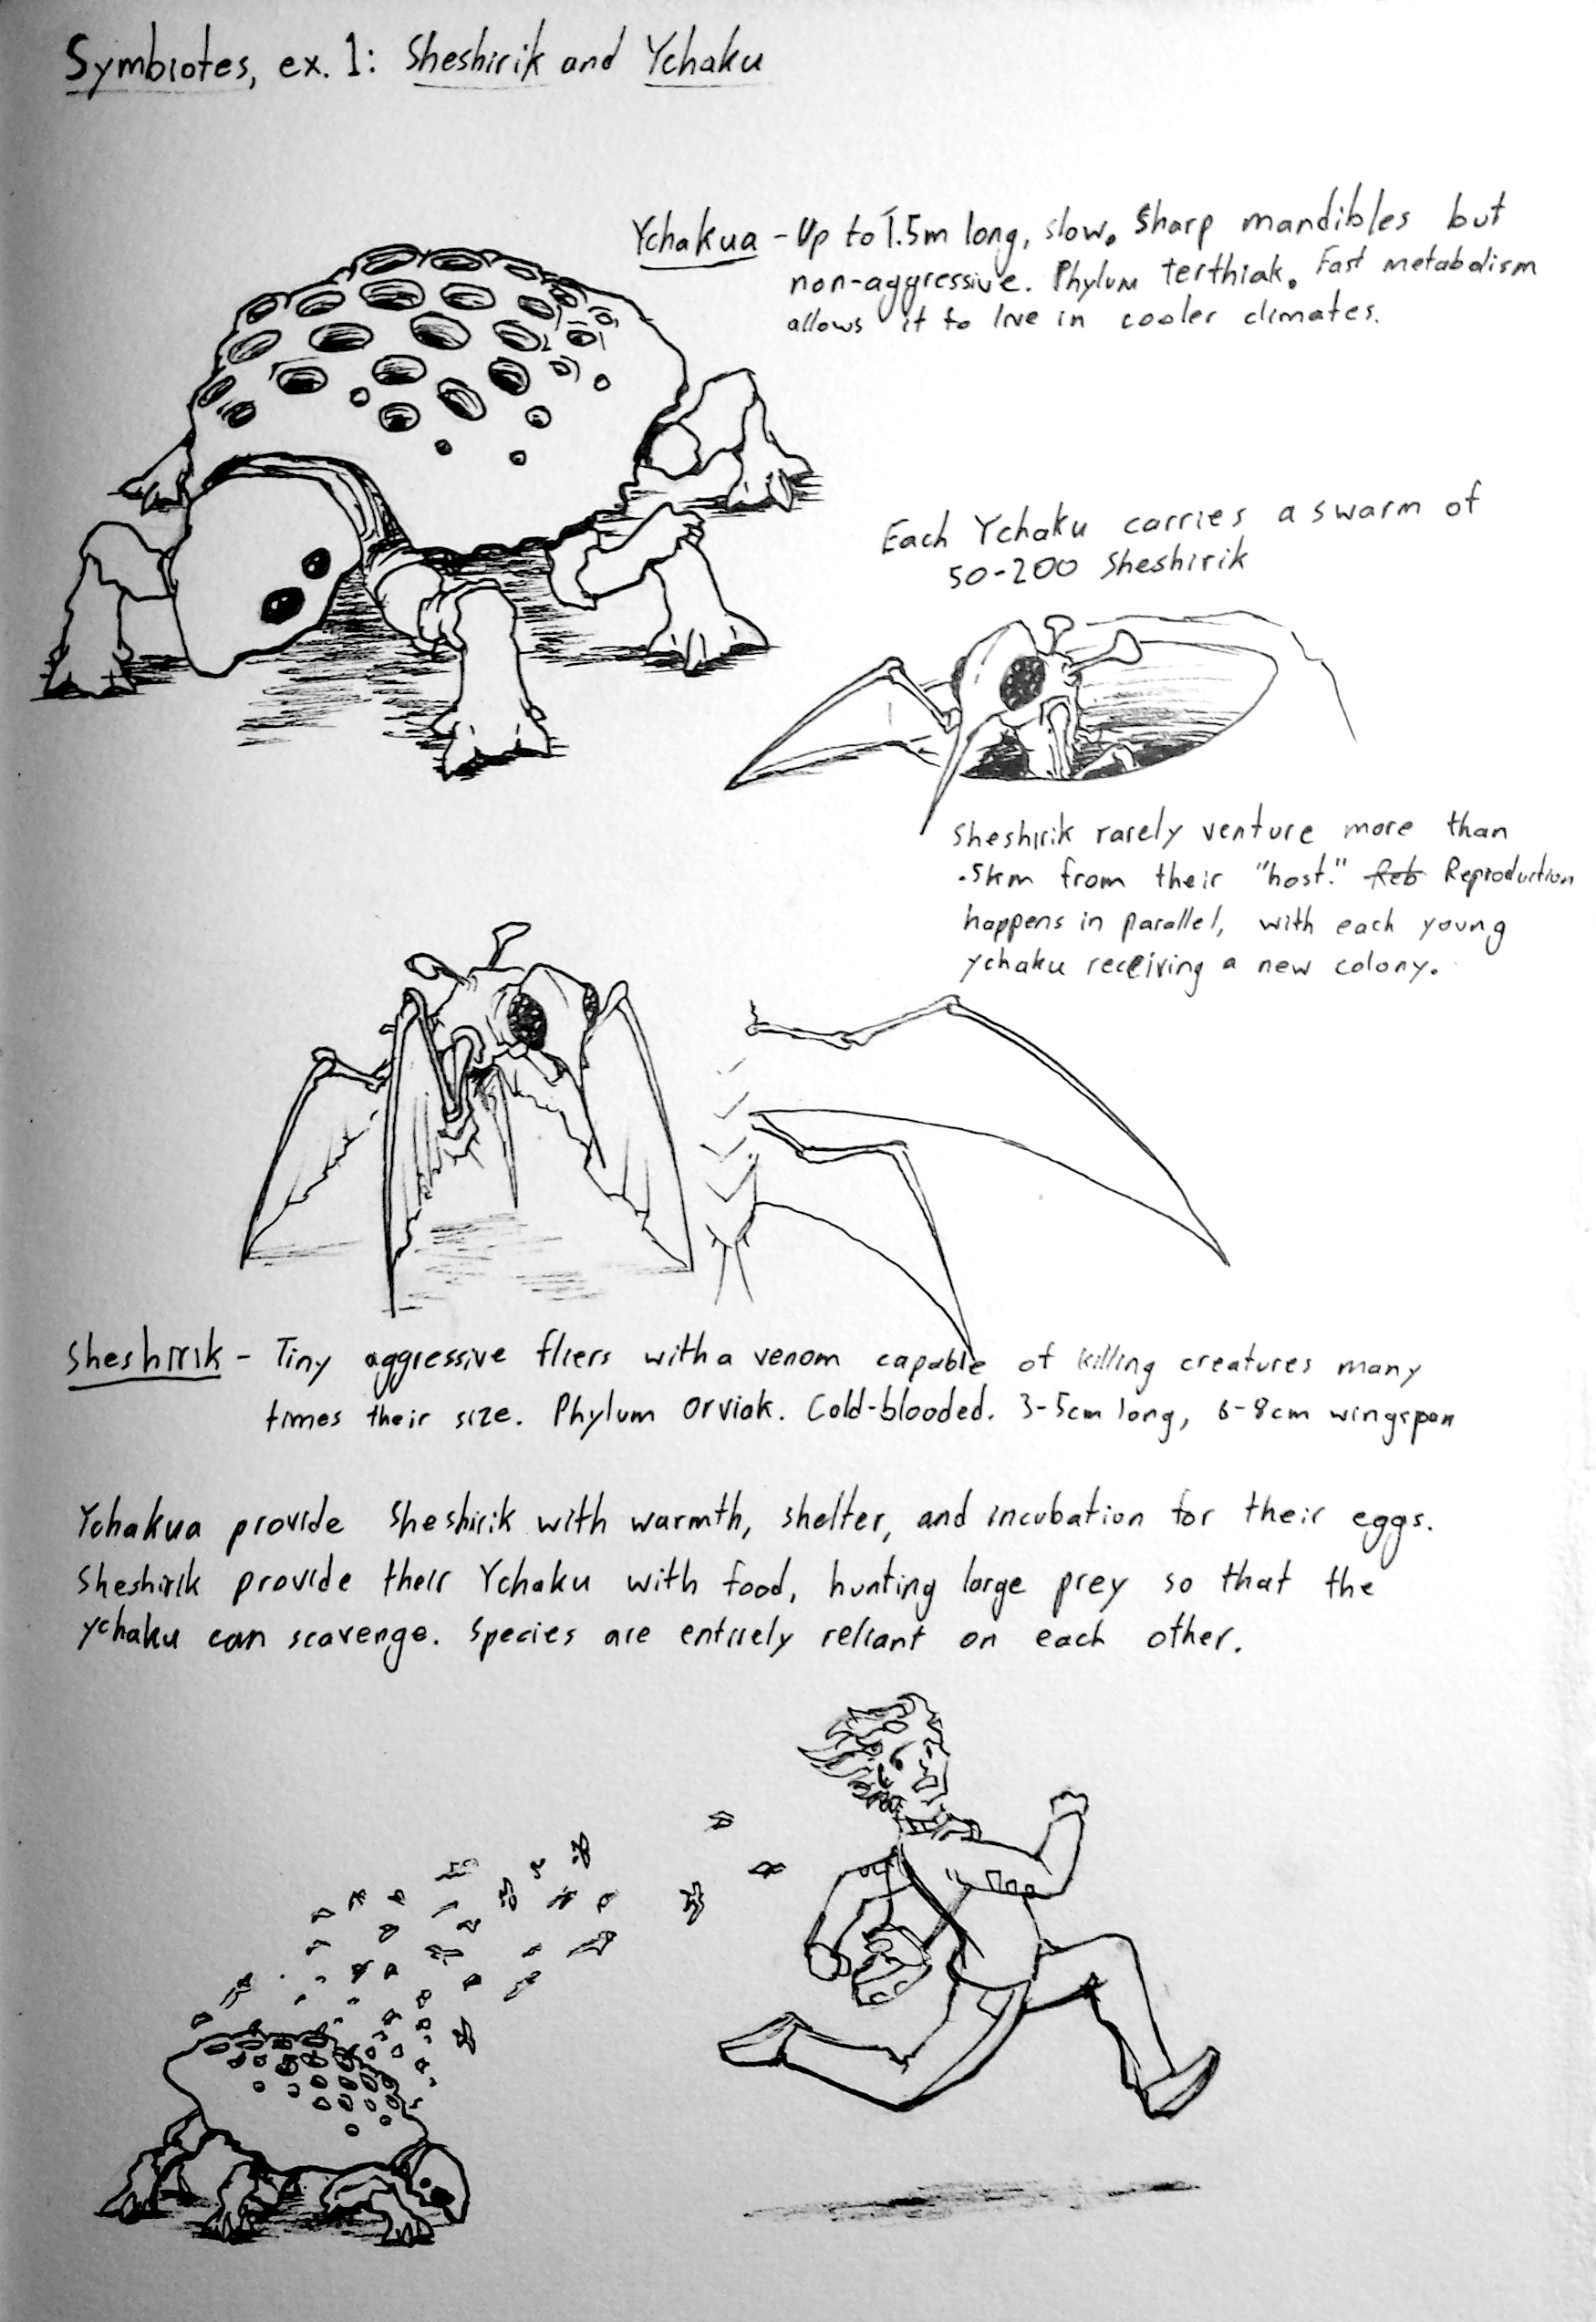 Symbiotes, ex. 1: Sheshirik and Ychaku
Ychakua - Up to 1.5m long, slow. Sharp mandibles but
non-aggressive. Phylum terthiak. Fast metabolism
allows it to live in cooler climates.
Each Ychaku carries a swarm of
50-200 Sheshirik
Sheshirik rarely venture more than
.5km from their "host." Reb Reproduction
happens in parallel, with each young
ychaku receiving a new colony.
Sheshirik - Tiny aggressive fliers with a venom capable of killing creatures many
times their size. Phylum orviak. Cold-blooded. 3-5cm long, 6-8cm wingspan
Ychakua provide Sheshirik with warmth, shelter, and incubation for their eggs.
Sheshirik provide their Ychaku with food, hunting large prey so that the
ychaku can scavenge. Species are entirely reliant on each other.